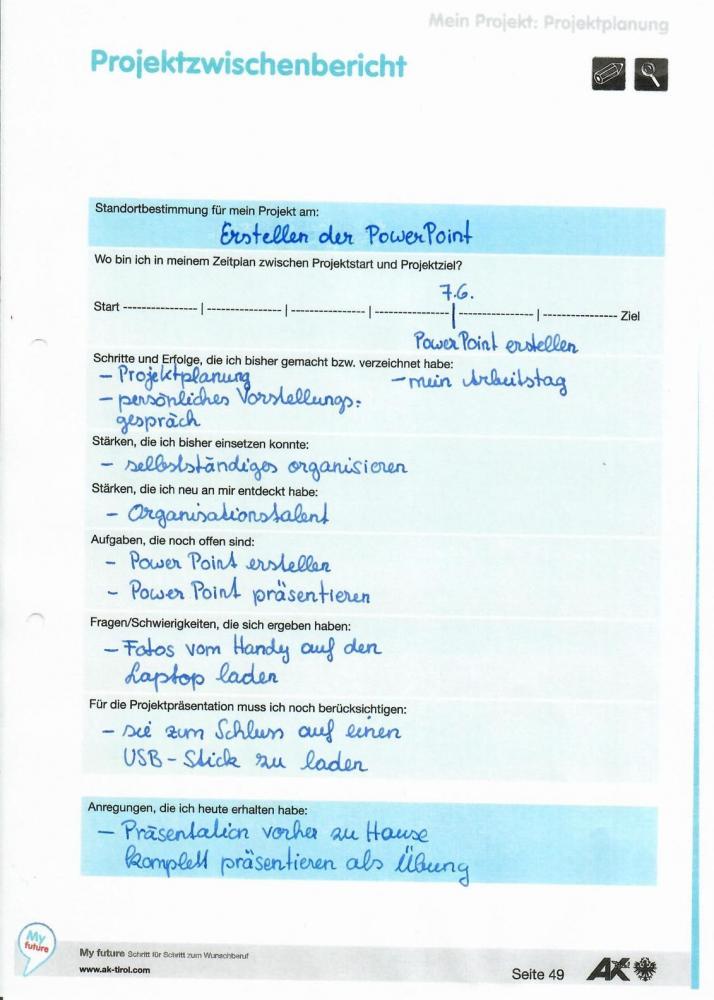 Mein Projekt: Projektplanung
Projektzwischenbericht
Standortbestimmung für mein Projekt am:
Erstellen der PowerPoint
Wo bin ich in meinem Zeitplan zwischen Projektstart und Projektziel?
7.6.
Start ----------------- | ----------------- | ----------------- | ----------------- | ----------------- | ----------------- Ziel
PowerPoint erstellen
Schritte und Erfolge, die ich bisher gemacht bzw. verzeichnet habe:
– Projektplanung – mein Arbeitstag
– persönliches Vorstellungs-
gespräch
Stärken, die ich bisher einsetzen konnte:
– selbstständiges organisieren
Stärken, die ich neu an mir entdeckt habe:
– Organisationstalent
Aufgaben, die noch offen sind:
– Power Point erstellen
– Power Point präsentieren
Fragen/Schwierigkeiten, die sich ergeben haben:
– Fotos vom Handy auf den
Laptop laden
Für die Projektpräsentation muss ich noch berücksichtigen:
– sie zum Schluss auf einen
USB-Stick zu laden
Anregungen, die ich heute erhalten habe:
– Präsentation vorher zu Hause
komplett präsentieren als Übung
My future
My future Schritt für Schritt zum Wunschberuf
www.ak-tirol.com
Seite 49 AK